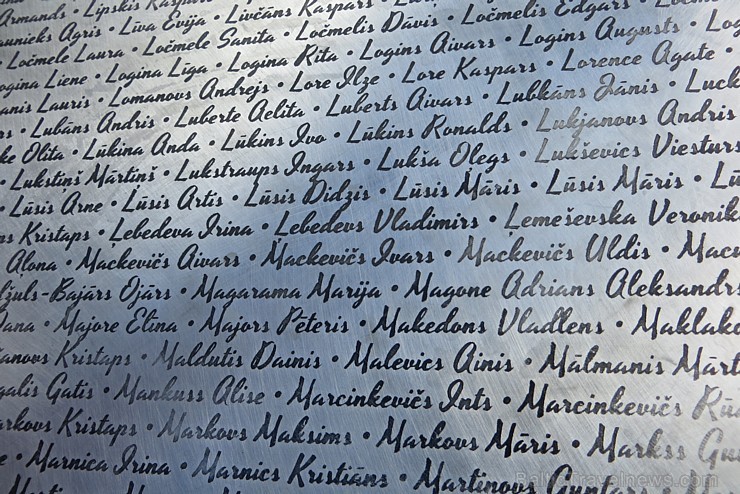 Armands • Lipskis Kaspars
Agris • Līva Evija • Līvčāns Kaspars
• Ločmele Laura • Ločmele Sanita • Ločmelis Dāvis • Ločmelis Edgars
Liene • Logina Līga • Logina Rita • Logins Aivars • Logins Augusts
Lauris • Lomanovs Andrejs • Lore Ilze • Lore Kaspars • Lorence Agate •
• Lubāns Andris • Luberte Aelita • Luberts Aivars • Lubkāns Jānis
Olita • Lūkina Anda • Lūkins Ivo • Lūkins Ronalds • Lukjanovs Andris
• Lukstiņš Mārtiņš • Lukstraups Ingars • Lukša Oļegs • Lukševics Viesturs
• Lūsis Arne • Lūsis Artis • Lūsis Didzis • Lūsis Māris • Lūsis Māris
Kristaps • Ļebedeva Irina • Ļebedevs Vladimirs • Ļemeševska Veronika
Alona • Mackevičs Aivars • Mackevičs Ivars • Mackevičs Uldis
Bajārs Ojārs • Magarama Marija • Magone Adrians Aleksandrs
• Majore Elīna • Majors Pēteris • Makedons Vladlens •
Kristaps • Maldutis Dainis • Malevics Ainis • Mālmanis
Gatis • Mankuss Alise • Marcinkevičs Ints • Marcinkevičs
Kristaps • Markovs Maksims • Markovs Māris • Markss
• Marnica Irina • Marnics Kristiāns • Martinovs Guntars
BalticTravelnews.com